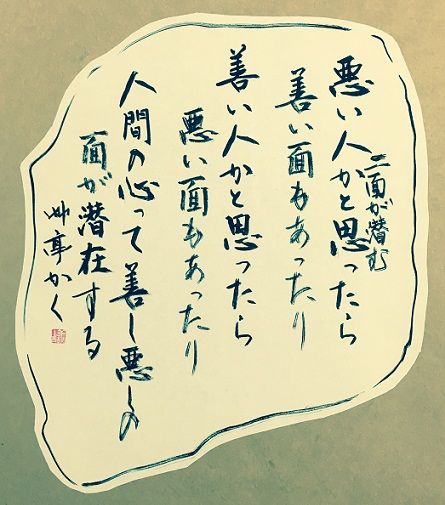 二面が潜む
悪い人かと思ったら
善い面もあったり
善い人かと思ったら
悪い面もあったり
人間の心って善し悪しの
面が潜在する
艸亭かく